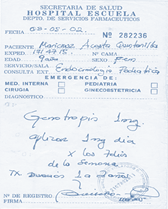 SECRETARIA DE SALUD
HOSPITAL ESCUELA
DEPTO. DE SERVICIOS FARMACEUTICOS
02-05-02. Nº 282236
PACIENTE: Maricasa Acosta
EXP: 1714715. Nº CAMA
EDAD 9años SEXO Fem
SERVICIO/SALA Endocrinología Pediatrica
CONSULTA EXT.
EMERGENCIA DE:
MED. INTERNA PEDIATRIA
CIRUGIA GINECOBSTETRICIA
DIAGNOSTICO
Genotropin
aplicar 1mg dia
x los
de la semana
Nº DE REGISTRO
FIRMA